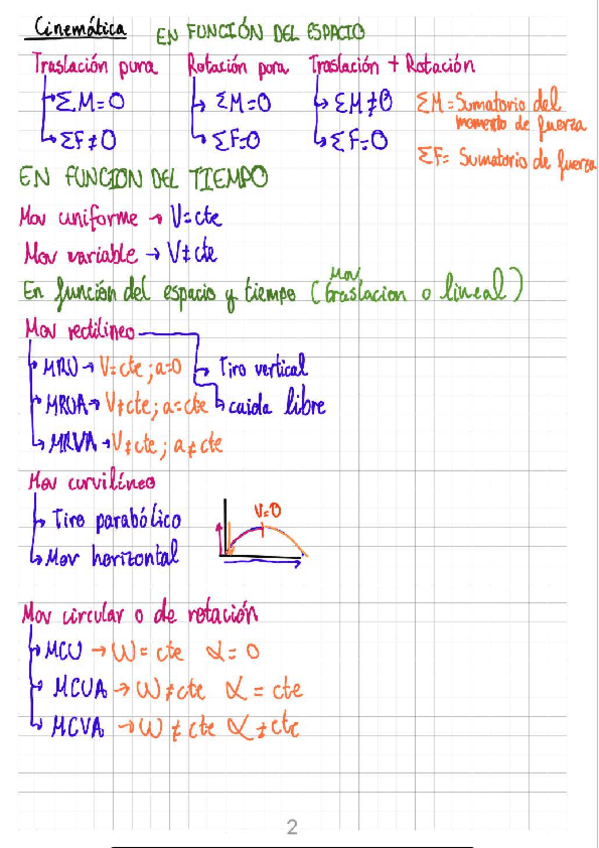 Cinemática EN FUNCIÓN DEL ESPACIO
Traslación pura Rotación pora Traslación + Rotación
ΣM=0 ΣM=0 ΣM≠0 ΣM=Sumatorio del momento de fuerza
ΣF≠0 ΣF=0 ΣF=0 ΣF= Sumatorio de fuerza
EN FUNCION DEL TIEMPO
Mov uniforme → V=cte
Mov variable → V≠cte
En función del espacio y tiempo (Mov traslacion o lineal)
Mov rectilineo
MRU → V=cte; a=0 Tiro vertical
MRUA → V≠cte; a=cte caida libre
MRVA → V≠cte; a≠cte
Mov curvilíneo
Tiro parabólico V=0
Mov horizontal
Mov circular o de rotación
MCU → W= cte α= 0
MCUA → W≠cte α = cte
MCVA → W≠cte α≠cte
2